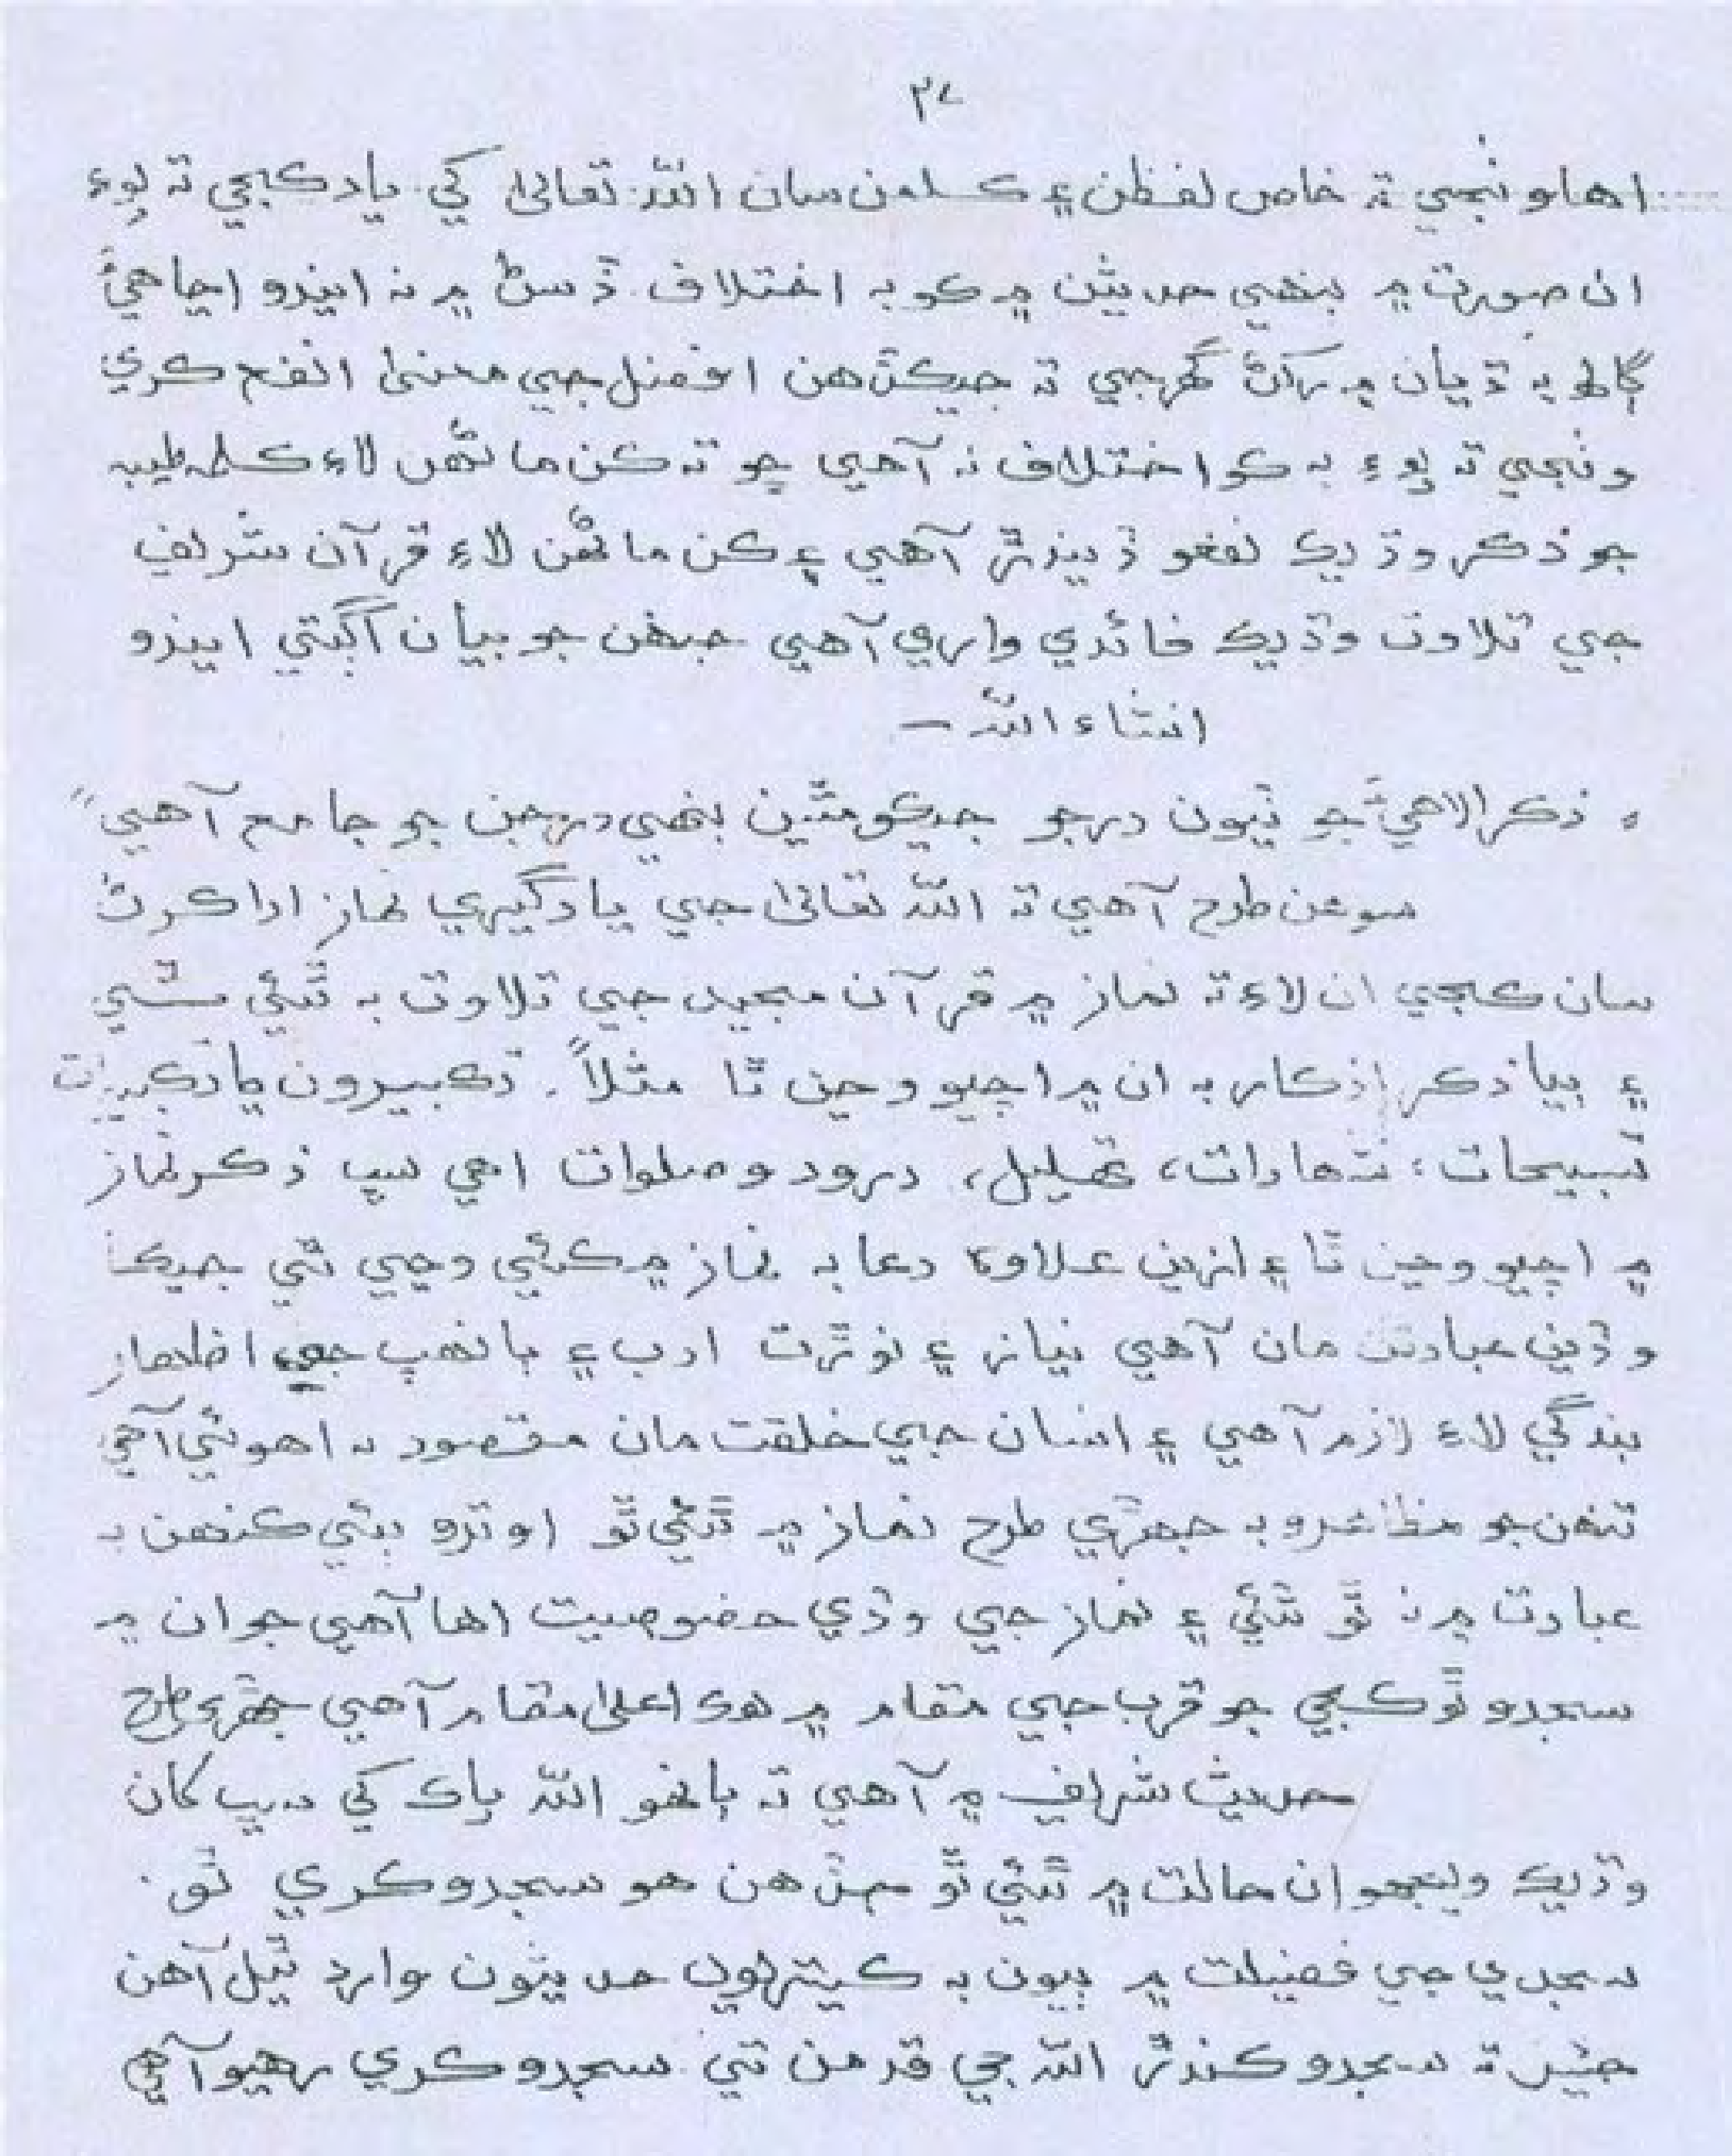 ٣٧
اها ونجي ته خاص لفظن ۽ ڪلمن سان الله تعالیٰ کي ياد ڪجي ته پوءِ
ان صورت ۾ ٻنهي حديثن ۾ ڪو به اختلاف ڏسڻ ۾ نه ايندو اڃا هيءَ
ڳالهه به ڌيان ۾ رکڻ گهرجي ته جيڪڏهن افضل جي معنیٰ انفع ڪري
ونجي ته پوءِ به ڪو اختلاف نه آهي ڇو ته ڪن ماڻهن لاءِ ڪلمه طيبه
جو ذڪر وڌيڪ نفعو ڏيندڙ آهي ۽ ڪن ماڻهن لاءِ قرآن شريف
جي تلاوت وڌيڪ فائدي واري آهي جنهن جو بيان اڳتي ايندو
انشاء الله —
. ذڪر الاهيءَ جو ٽيون درجو جيڪو مٿين ٻنهي درجن جو جامع آهي"
سو هن طرح آهي ته الله تعالیٰ جي يادگيري نماز ادا ڪرڻ
سان ڪجي ان لاءِ ته نماز ۾ قرآن مجيد جي تلاوت به ٿئي ٿي
۽ ٻيا ذڪر اذڪار به ان ۾ اچيو وڃن ٿا مثلاً. تڪبيرون يا تڪبيرات
تسبيحات، شهادات، تهليل، درود و صلوات اهي سڀ ذڪر نماز
۾ اچيو وڃن ٿا ۽ انهن علاوه دعا به نماز ۾ ڪئي وڃي ٿي جيڪا
وڏين عبادتن مان آهي نياز ۽ نوڙت ادب ۽ ٻانهپ جي اظهار
بندگي لاءِ لازم آهي ۽ انسان جي خلقت مان مقصود به اهو ئي آهي
تنهن جو مظاهرو به جهڙي طرح نماز ۾ ٿئي ٿو اوترو ٻئي ڪنهن به
عبادت ۾ نه ٿو ٿئي ۽ نماز جي وڏي خصوصيت اها آهي جو ان ۾
سجدو ٿو ڪجي جو قرب جي مقام ۾ هڪ اعلیٰ مقام آهي جهڙي طرح
حديث شريف ۾ آهي ته ٻانهو الله پاڪ کي سڀ کان
وڌيڪ ويجهو ان حالت ۾ ٿئي ٿو جڏهن هو سجدو ڪري ٿو.
سجدي جي فضيلت ۾ ٻيون به ڪيتريون حديثون وارد ٿيل آهن
جيئن ته سجدو ڪندڙ الله جي قدمن تي سجدو ڪري رهيو آهي